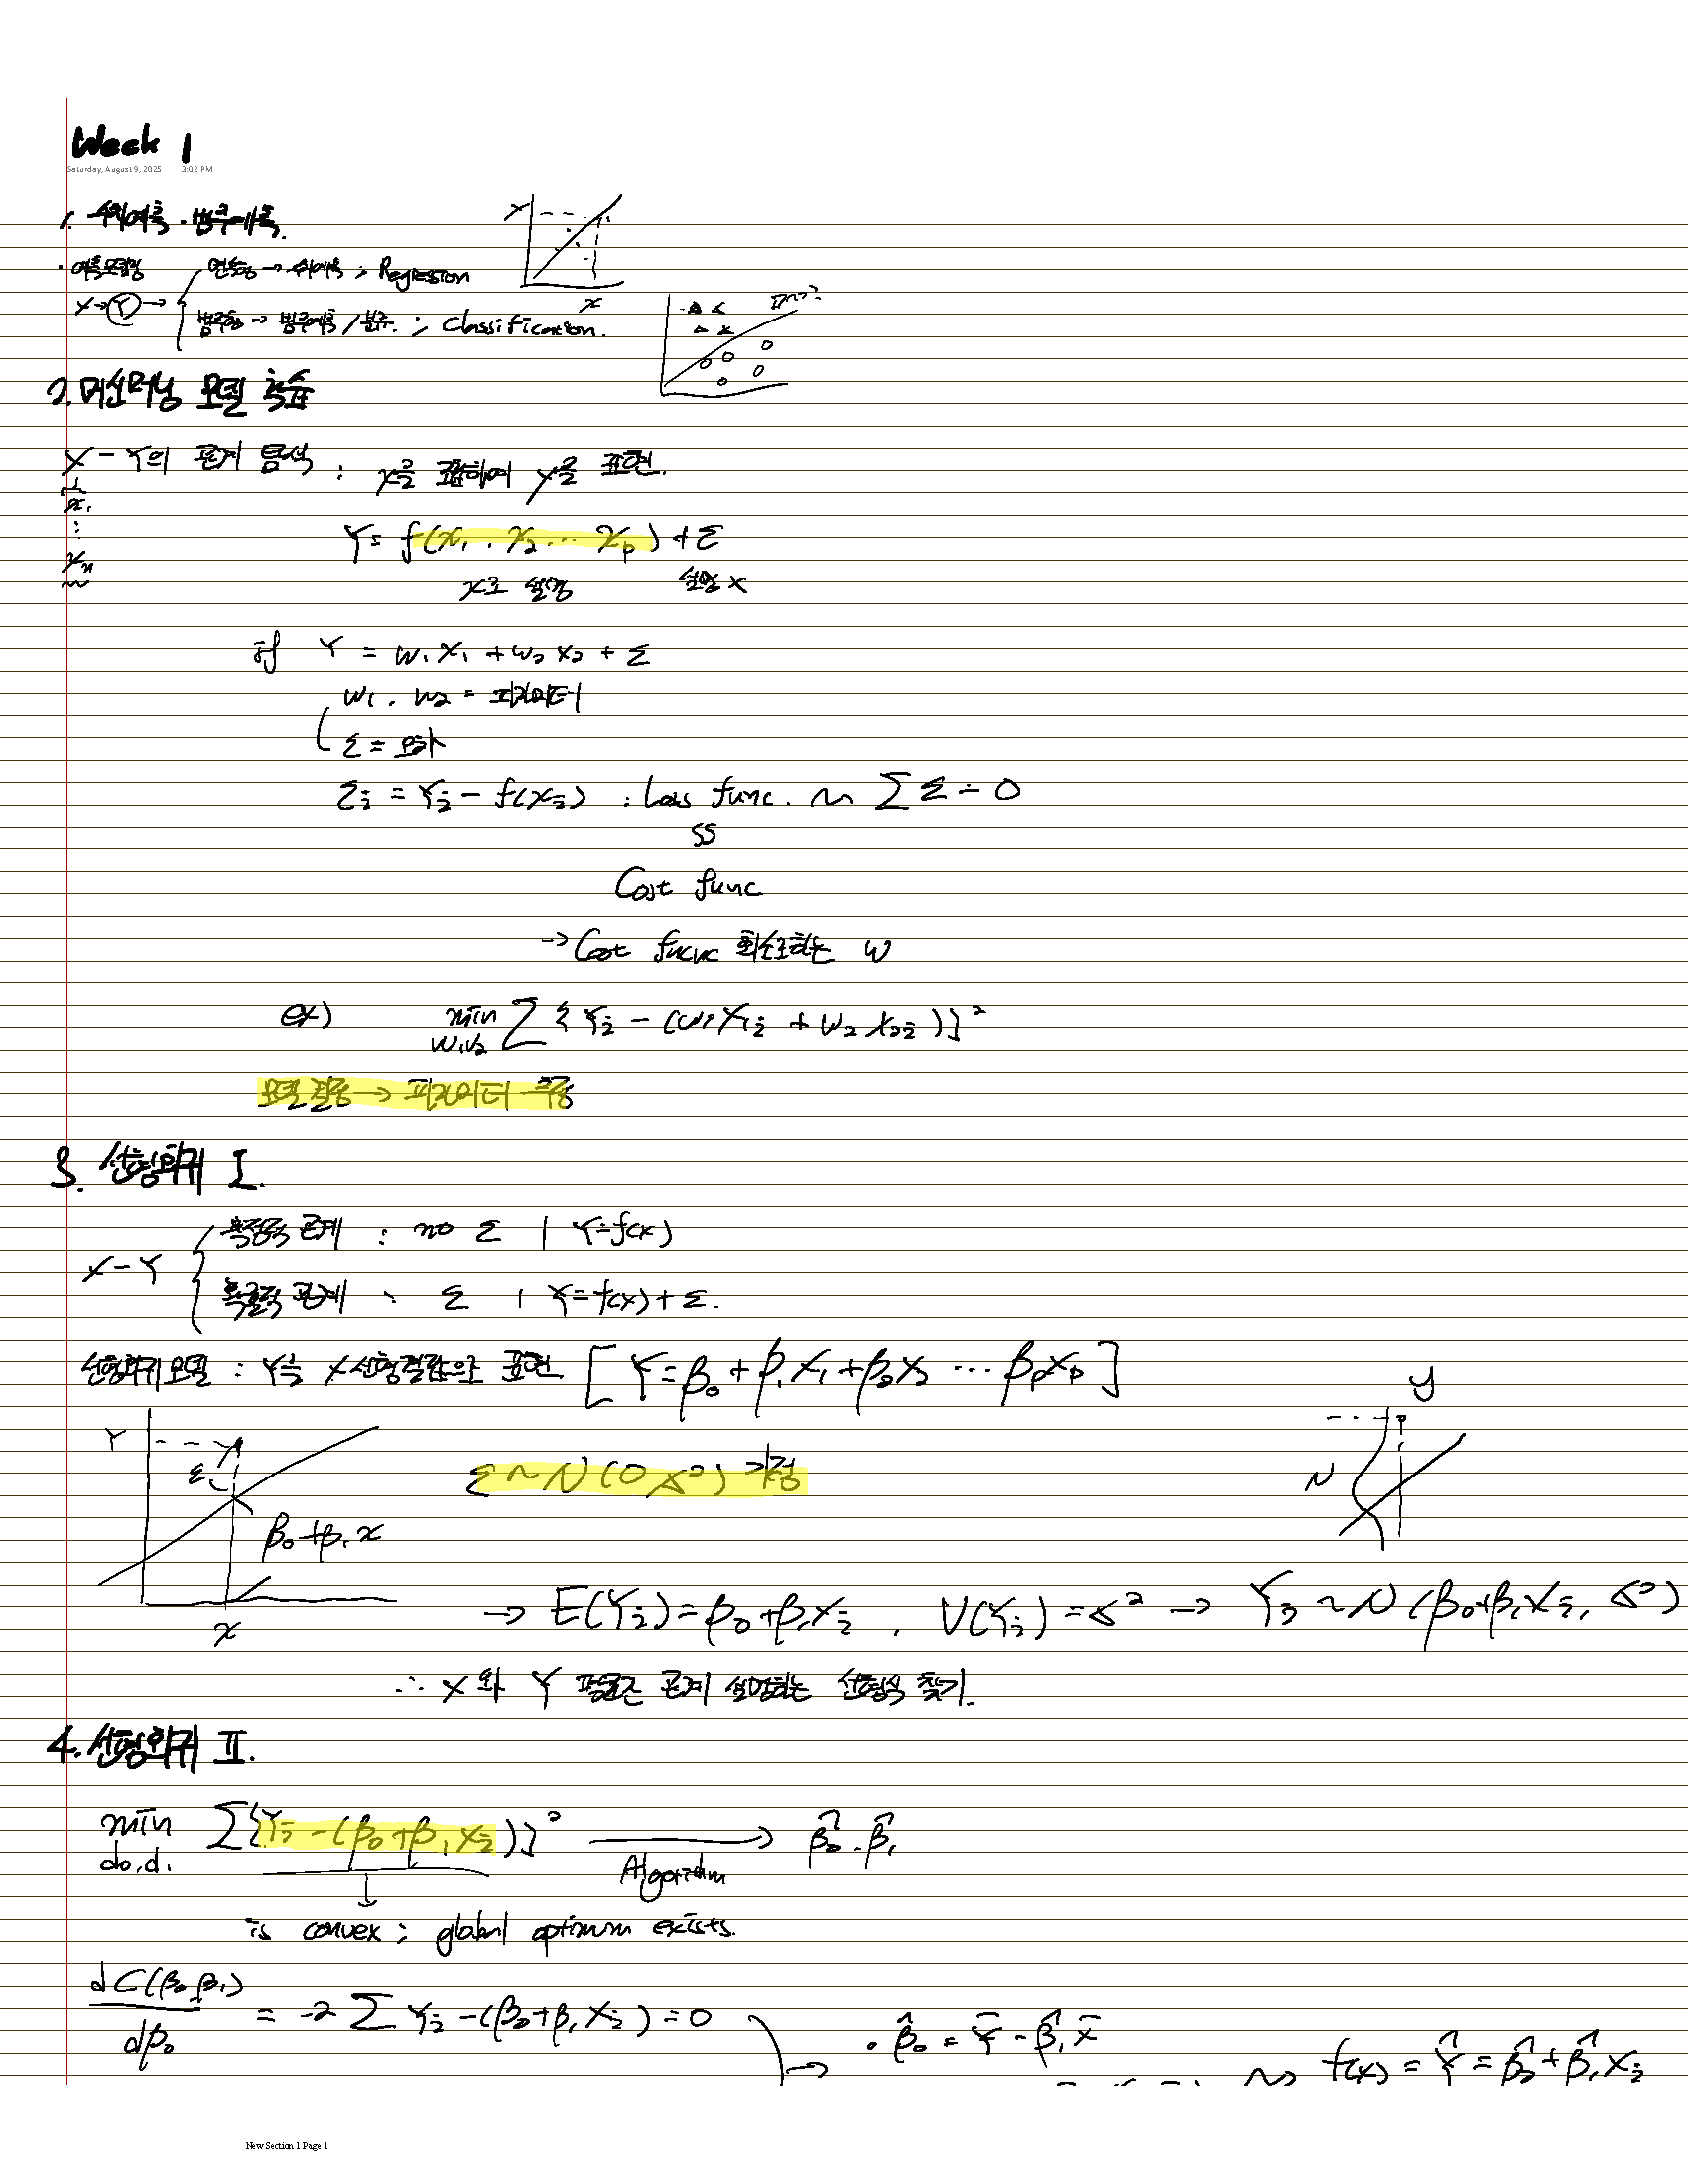 Week 1
Saturday, August 9, 2025 3:02 PM
1. 수치예측 · 범주예측.
· 예측모델링
X → Y → 연속형 → 수치예측 ; Regression
범주형 → 범주예측 / 분류. ; Classification.
Y
x
2. 머신러닝 모델 학습
X - Y의 관계 탐색 : X를 조합하여 Y를 표현.
x₁
:
xₙ
Y = f(x₁, x₂ ... xₚ) + ε
X로 설명 설명 X
if Y = w₁x₁ + w₂x₂ + ε
w₁, w₂ = 파라미터
ε = 오차
εᵢ = Yᵢ - f(xᵢ) : Loss func. ~ Σε = 0
SS
Cost func
→ Cost func 최소로하는 w
ex) min Σ{Yᵢ - (w₁x₁ᵢ + w₂x₂ᵢ)}²
w₁,w₂
모델 결정 → 파라미터 추정
3. 선형회귀 I.
X - Y 확정적 관계 : no ε | Y = f(x)
확률적 관계 : ε | Y = f(x) + ε.
선형회귀모델 : Y를 X선형결합으로 표현 [ Y = β₀ + β₁X₁ + β₂X₂ ... βₚXₚ ]
y
Y
ε
ε ~ N(0, σ²) 가정
N
β₀ + β₁x
x
→ E(Yᵢ) = β₀ + β₁Xᵢ , V(Yᵢ) = σ² → Yᵢ ~ N(β₀ + β₁Xᵢ, σ²)
∴ X와 Y 평균간 관계 설명하는 선형식 찾기.
4. 선형회귀 II.
min Σ{Yᵢ - (β₀ + β₁Xᵢ)}² → β̂₀, β̂₁
do, d₁ Algorithm
↓
is convex ; global optimum exists.
dC(β₀, β₁) / dβ₀ = -2 Σ Yᵢ - (β₀ + β₁Xᵢ) = 0
→ · β̂₀ = Ȳ - β̂₁X̄
~> f(x) = Ŷ = β̂₀ + β̂₁Xᵢ
New Section 1 Page 1